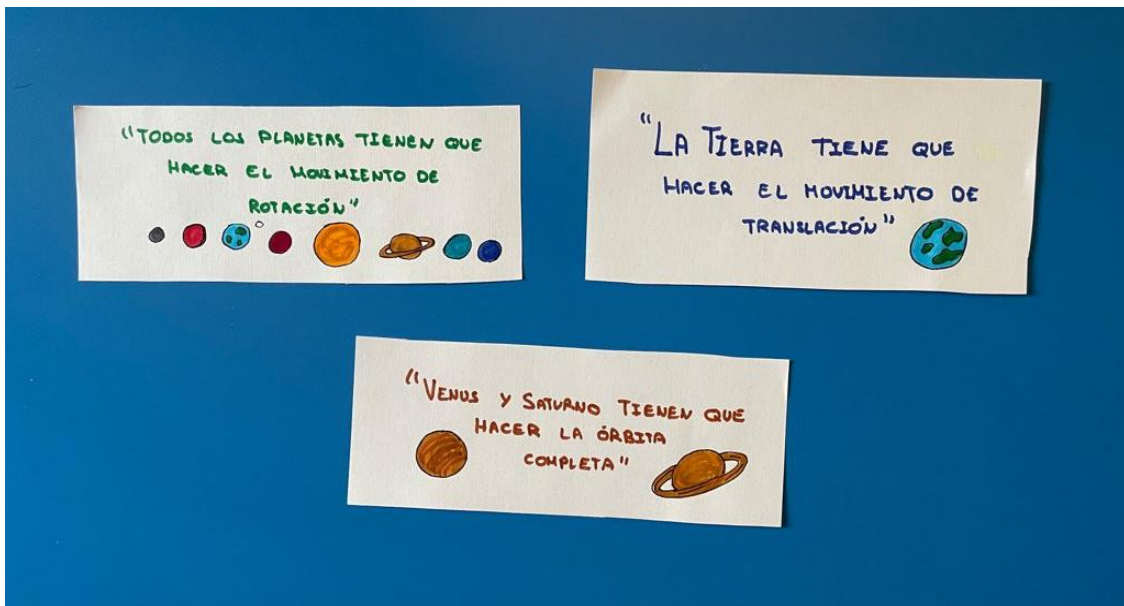 "TODOS LOS PLANETAS TIENEN QUE
HACER EL MOVIMIENTO DE
ROTACIÓN"
"LA TIERRA TIENE QUE
HACER EL MOVIMIENTO DE
TRANSLACIÓN"
"VENUS Y SATURNO TIENEN QUE
HACER LA ÓRBITA
COMPLETA"